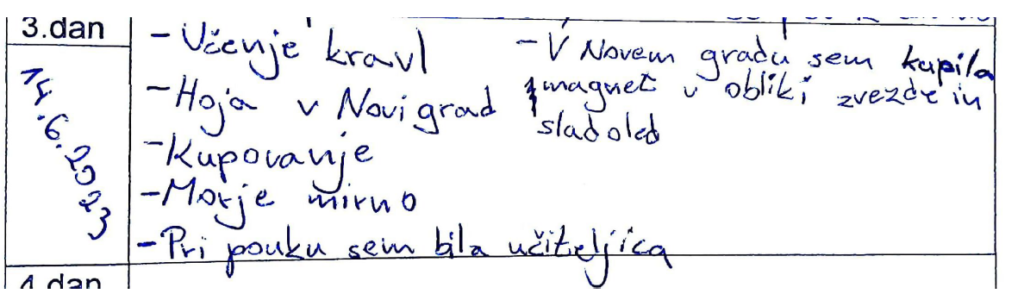 3.dan
14.6.2023
- Učenje kravl
- Hoja v Novigrad
- Kupovanje
- Morje mirno
- Pri pouku sem bila učiteljica
- V Novem gradu sem kupila
1 magnet v obliki zvezde in
sladoled
4.dan